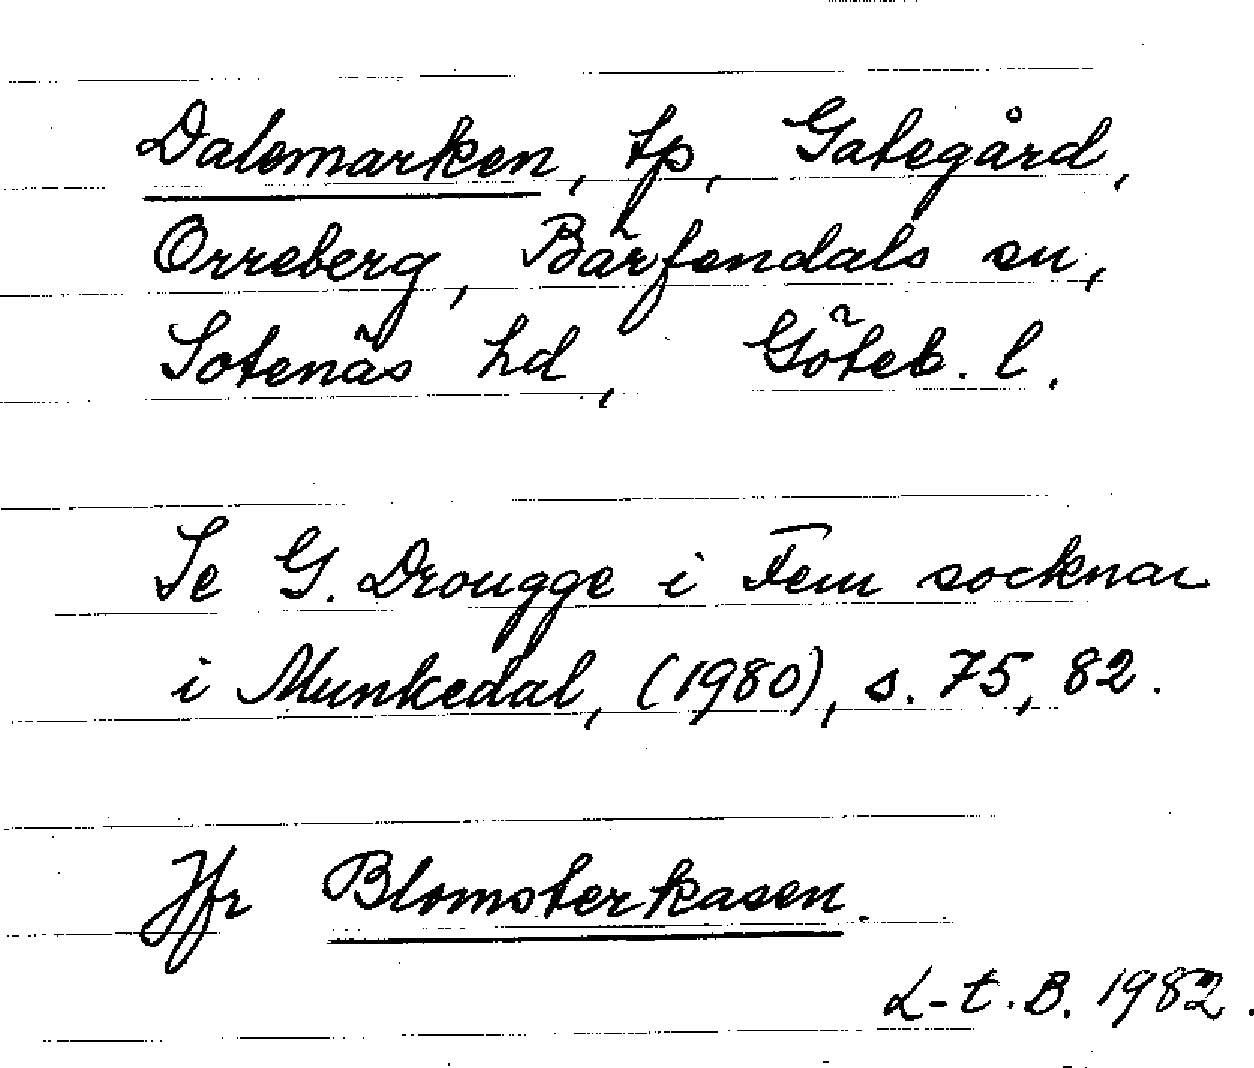 Dalemarken, tp, Gategård,
Orreberg, Bärfendals sn,
Sotenäs hd, Göteb. l.
Se G. Drougge i Fem socknar
i Munkedal, (1980), s. 75, 82.
Jfr Blomsterkasen.
L-t. B. 1982.